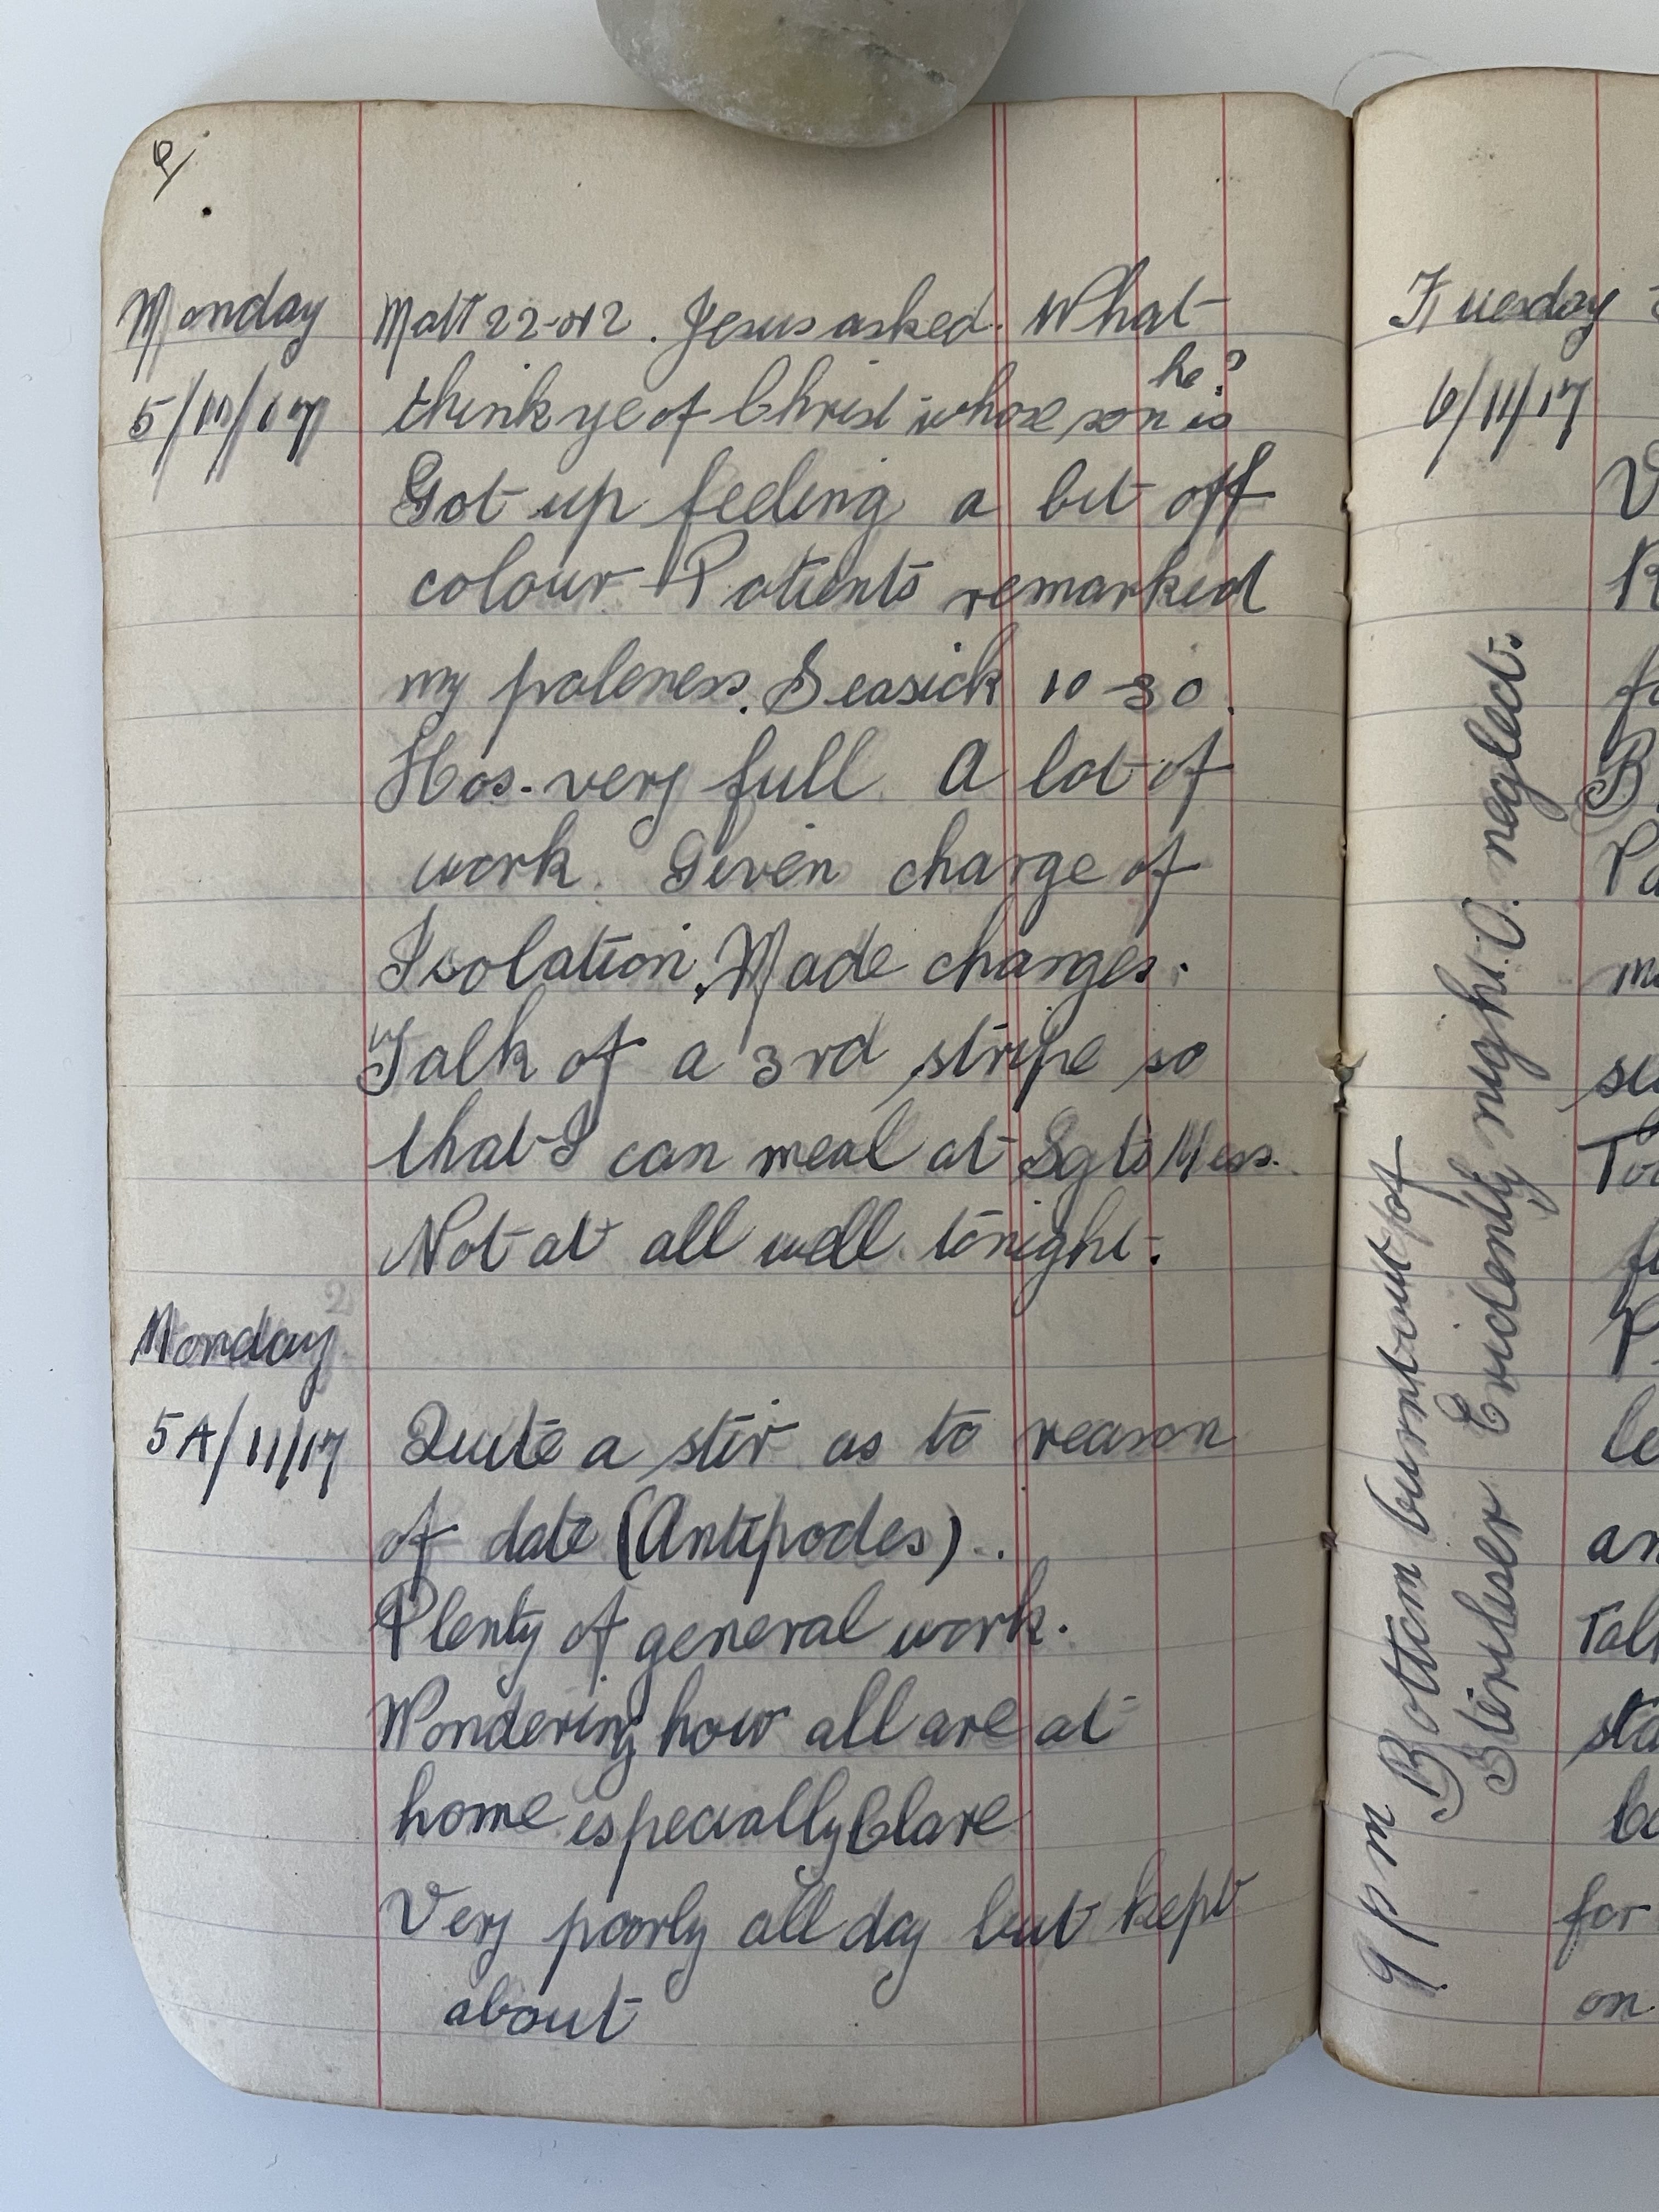 Monday Matt 22-42. Jesus asked. What
he?
5/11/17 think ye of Christ whose son is
Got up feeling a bit off
colour Patients remarked
my paleness. Seasick 10-30.
Hos. very full. A lot of
work. Given charge of
Isolation. Made changes.
Talk of a 3rd stripe so
that I can meal at Sgts Mess.
Not at all well tonight.
2
Monday
5A/11/17 Quite a stir as to reason
of date (Antipodes)..
Plenty of general work.
Wondering how all are at
home especially Clare
Very poorly all day but kept
about
Tuesday
6/11/17
9 pm Bottom burnt out of
Steriliser Evidently night. O. neglect.
for
on